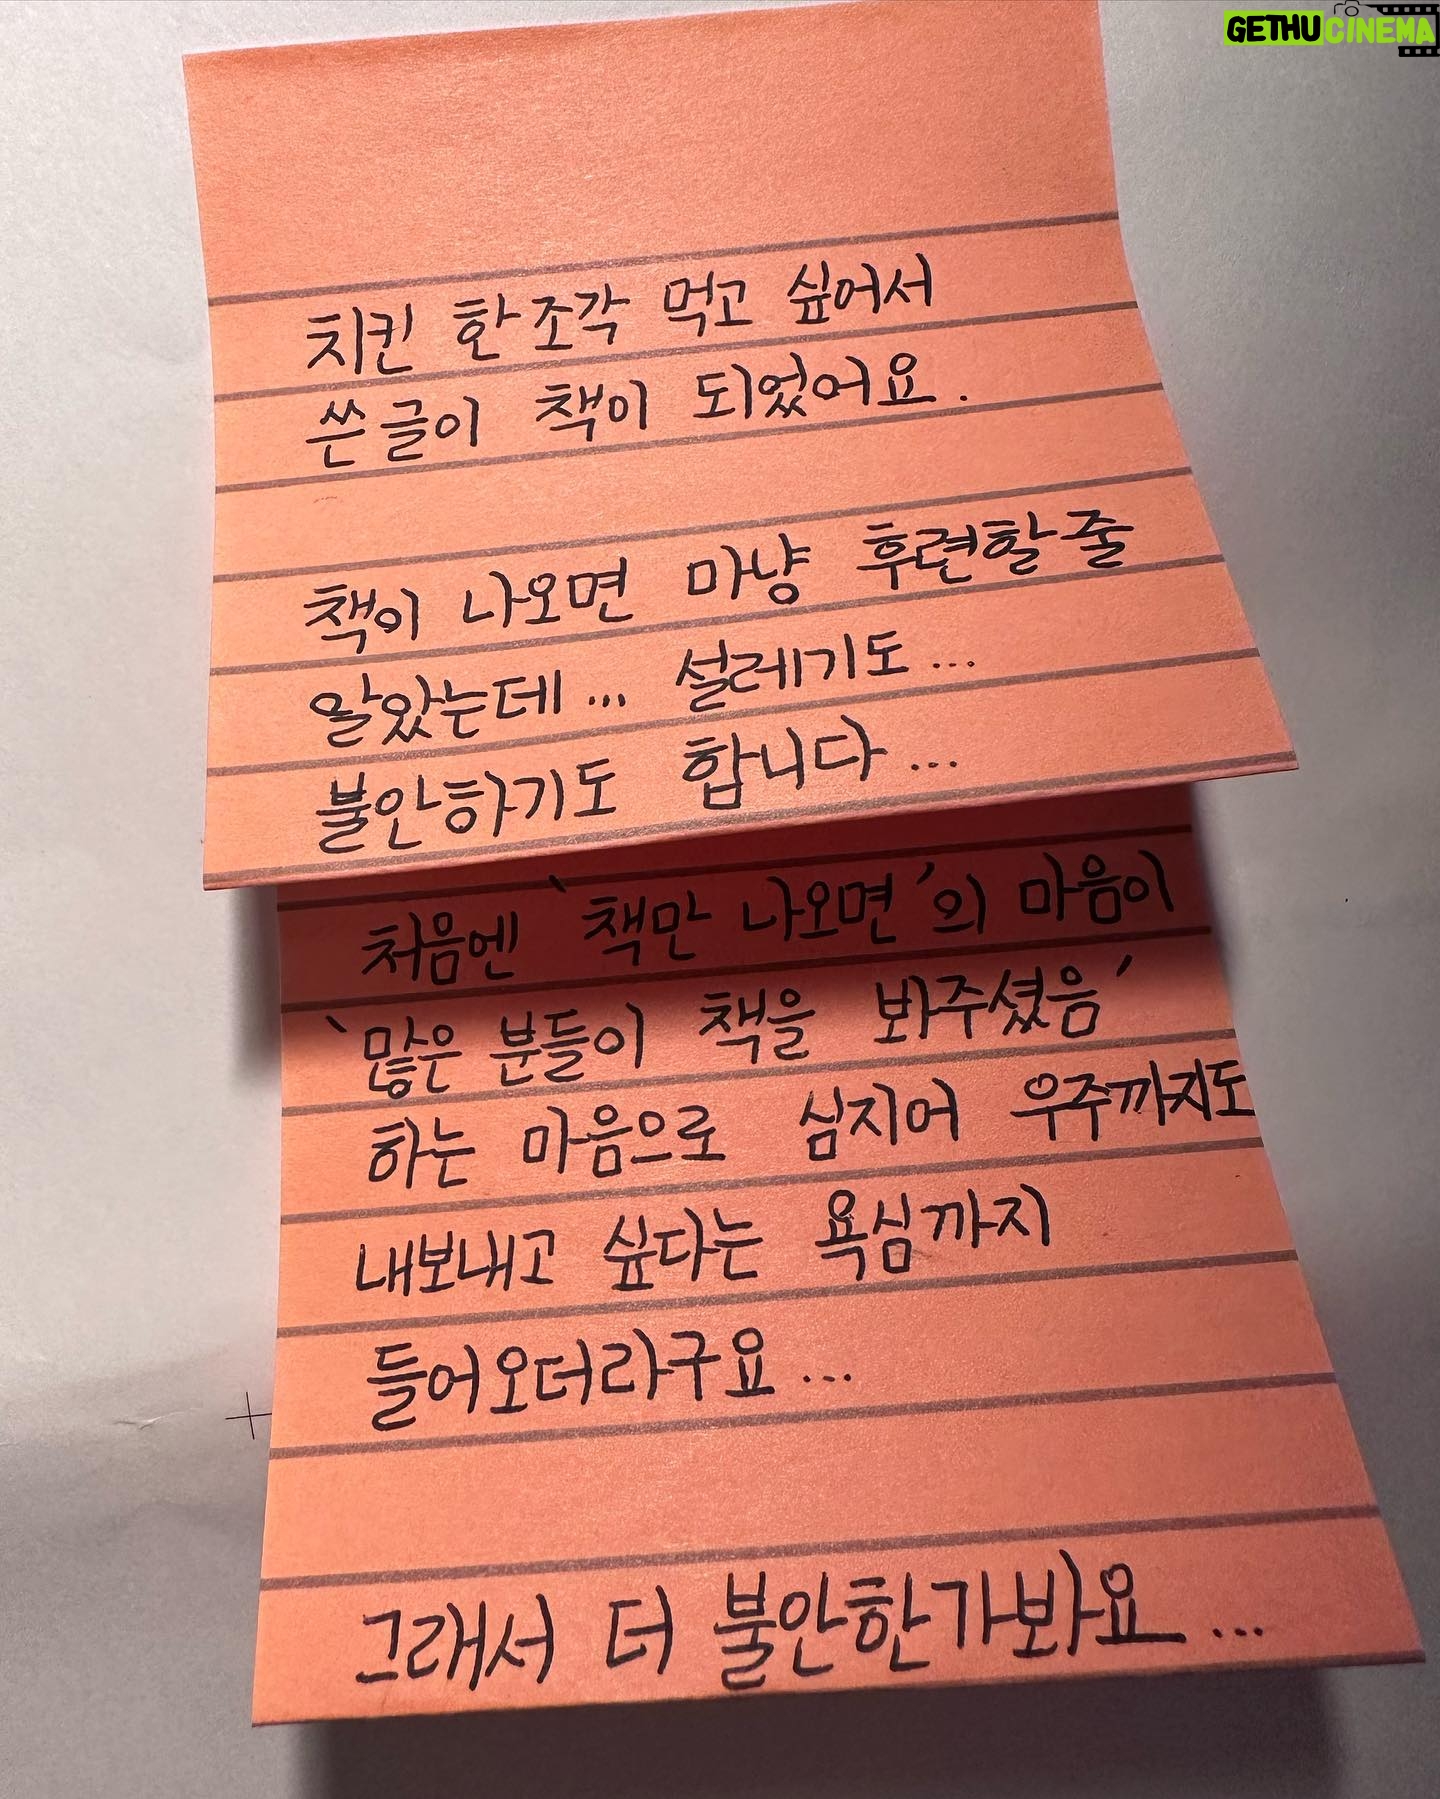 GETHU CINEMA
치킨 한조각 먹고 싶어서
쓴글이 책이 되었어요.
책이 나오면 마냥 후련할줄
알았는데... 설레기도...
불안하기도 합니다...
처음엔 '책만 나오면'의 마음이
'많은 분들이 책을 봐주셨음'
하는 마음으로 심지어 우주까지도
내보내고 싶다는 욕심까지
들어오더라구요...
그래서 더 불안한가봐요...